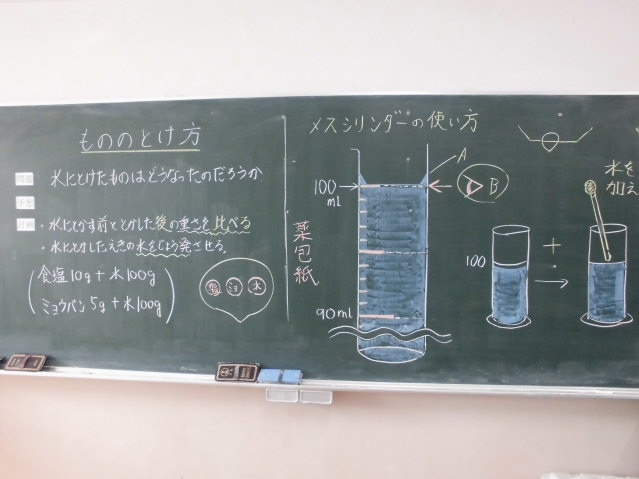 もののとけ方
問題 水にとけたものはどうなったのだろうか
予想
計画 ・水にとかす前ととかした後の重さを比べる
・水にとかしたえきの水をじょう発させる。
食塩10g+水100g
ミョウバン5g+水100g
食 ミョ 水
薬包紙
メスシリンダーの使い方
A
B
100
ml
90ml
100
+
水を
加え